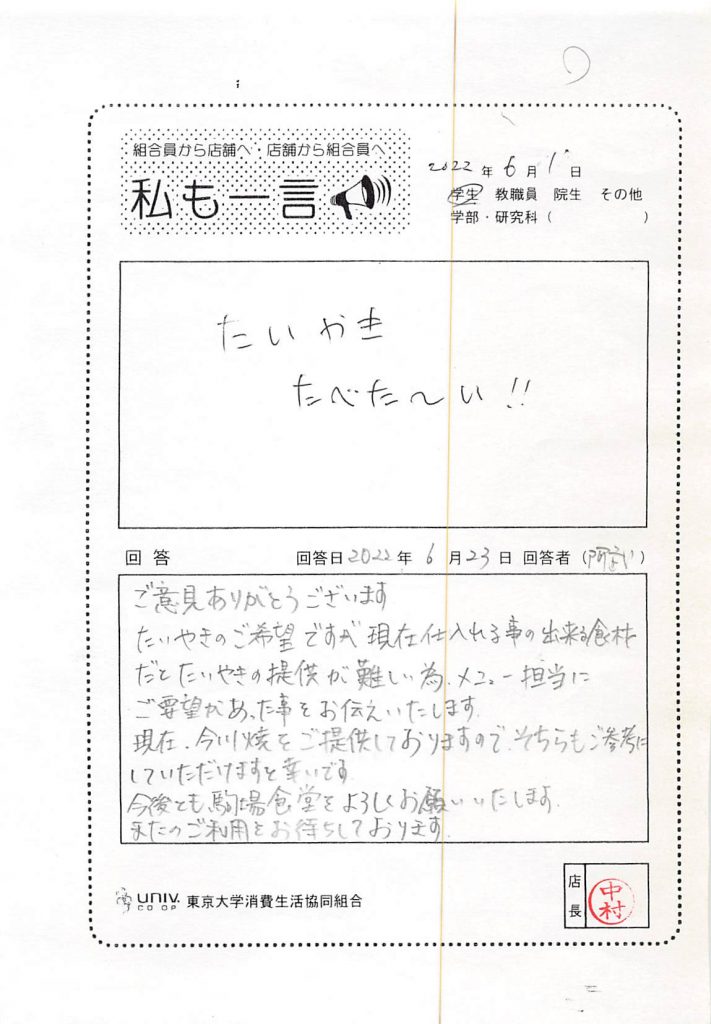 組合員から店舗へ・店舗から組合員へ
私も一言
2022年6月1日
学生 教職員 院生 その他
学部・研究科( )
たいやき
たべた〜い!!
回答 回答日2022年6月23日 回答者( )
ご意見ありがとうございます
たいやきのご希望ですが現在仕入れる事の出来る食材
だとたいやきの提供が難しい為、メニュー担当に
ご要望があった事をお伝えいたします。
現在、今川焼をご提供しておりますので、そちらもご参考に
していただけますと幸いです
今後とも駒場食堂をよろしくお願いいたします。
またのご利用をお待ちしております。
UNIV. CO-OP 東京大学消費生活協同組合
店長
中村